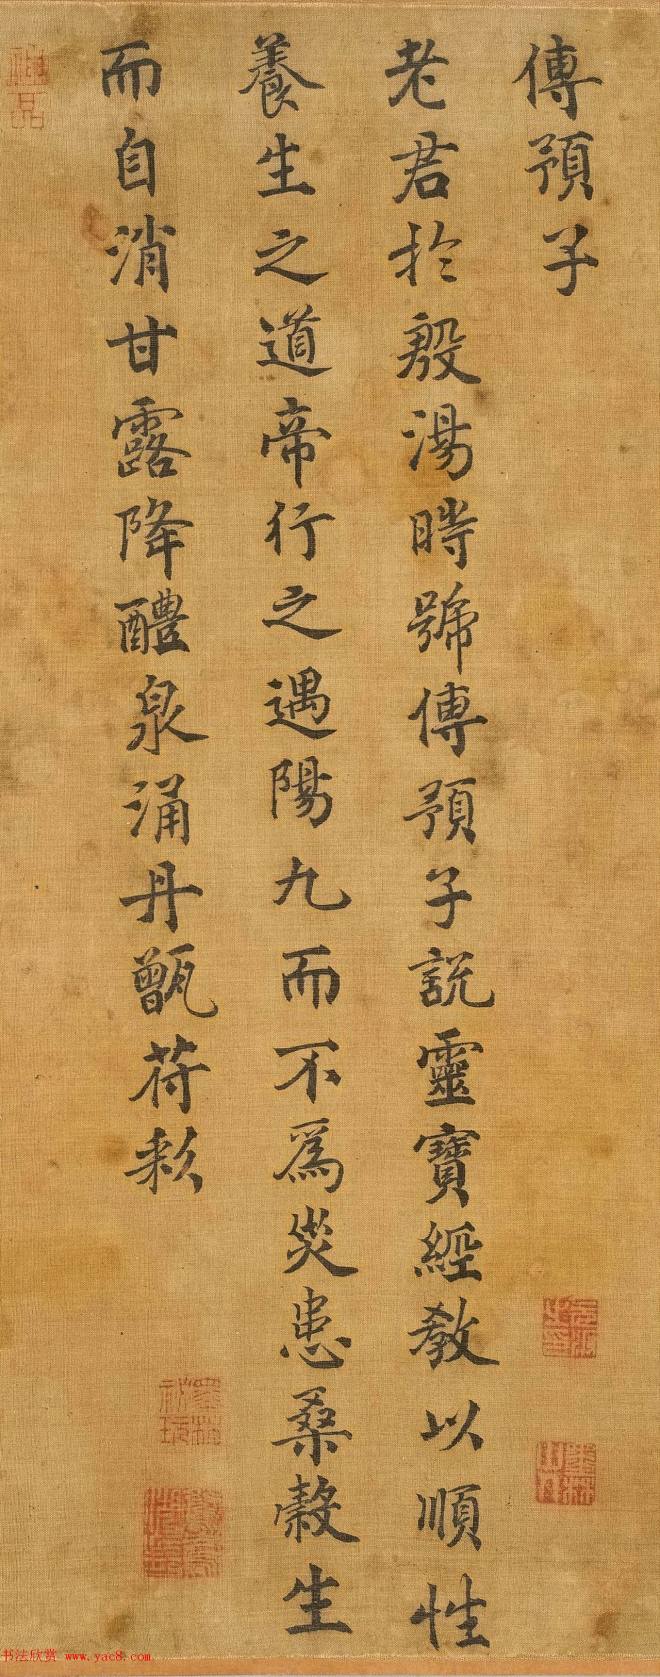 傅預子
老君於殷湯時號傅預子說靈寶經教以順性
養生之道帝行之遇陽九而不為災患桑穀生
而自消甘露降醴泉涌丹甑荷
书法欣赏 www.yac8.com